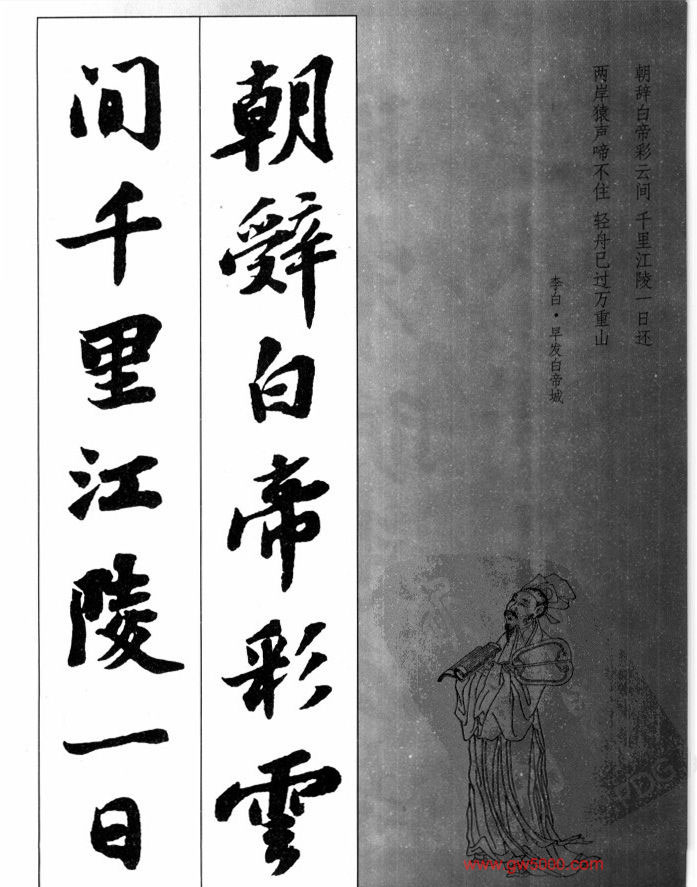 朝辞白帝彩云间 千里江陵一日还
两岸猿声啼不住 轻舟已过万重山
李白·早发白帝城
朝辭白帝彩雲
间千里江陵一日
PDG
www.gw5800.com